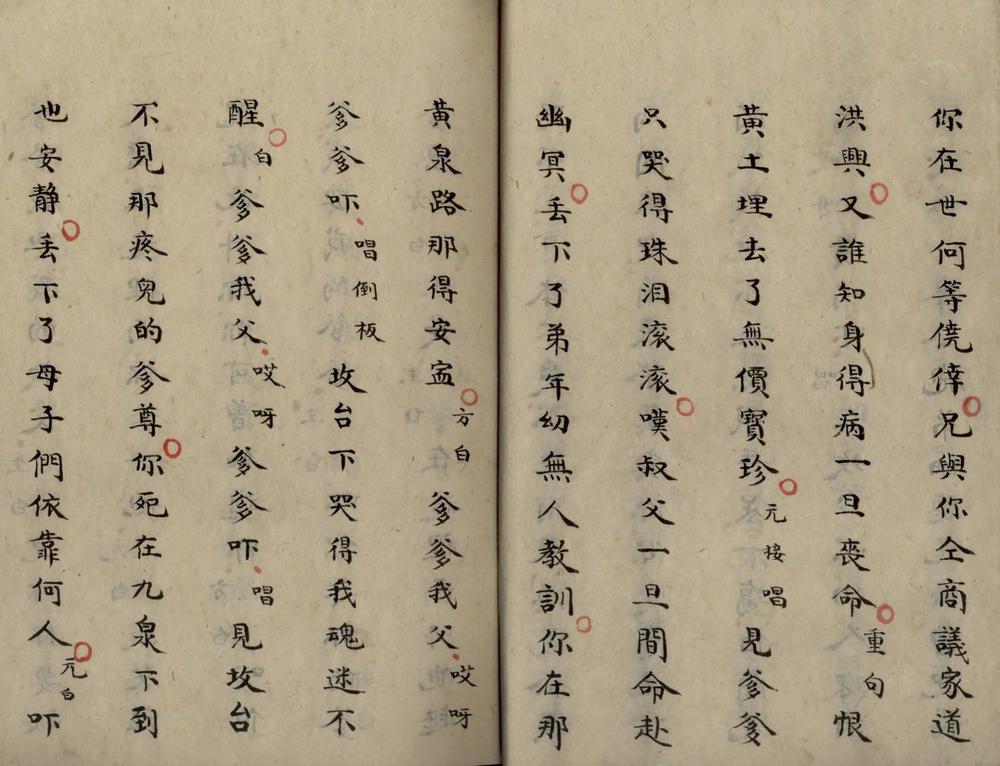 你在世何等僥倖兄與你仝商議家道
洪興又誰知身得病一旦喪命重句恨
黃土埋去了無價寶珍元接唱見爹爹
只哭得珠泪滚滚嘆叔父一旦間命赴
幽冥丢下了弟年幼無人教訓你在那
黃泉路那得安寍方白爹爹我父哎呀
爹爹吓唱倒板坟台下哭得我魂迷不
醒白爹爹我父哎呀爹爹吓唱見坟台
不見那疼兒的爹尊你死在九泉下到
也安静丢下了母子們依靠何人元白吓